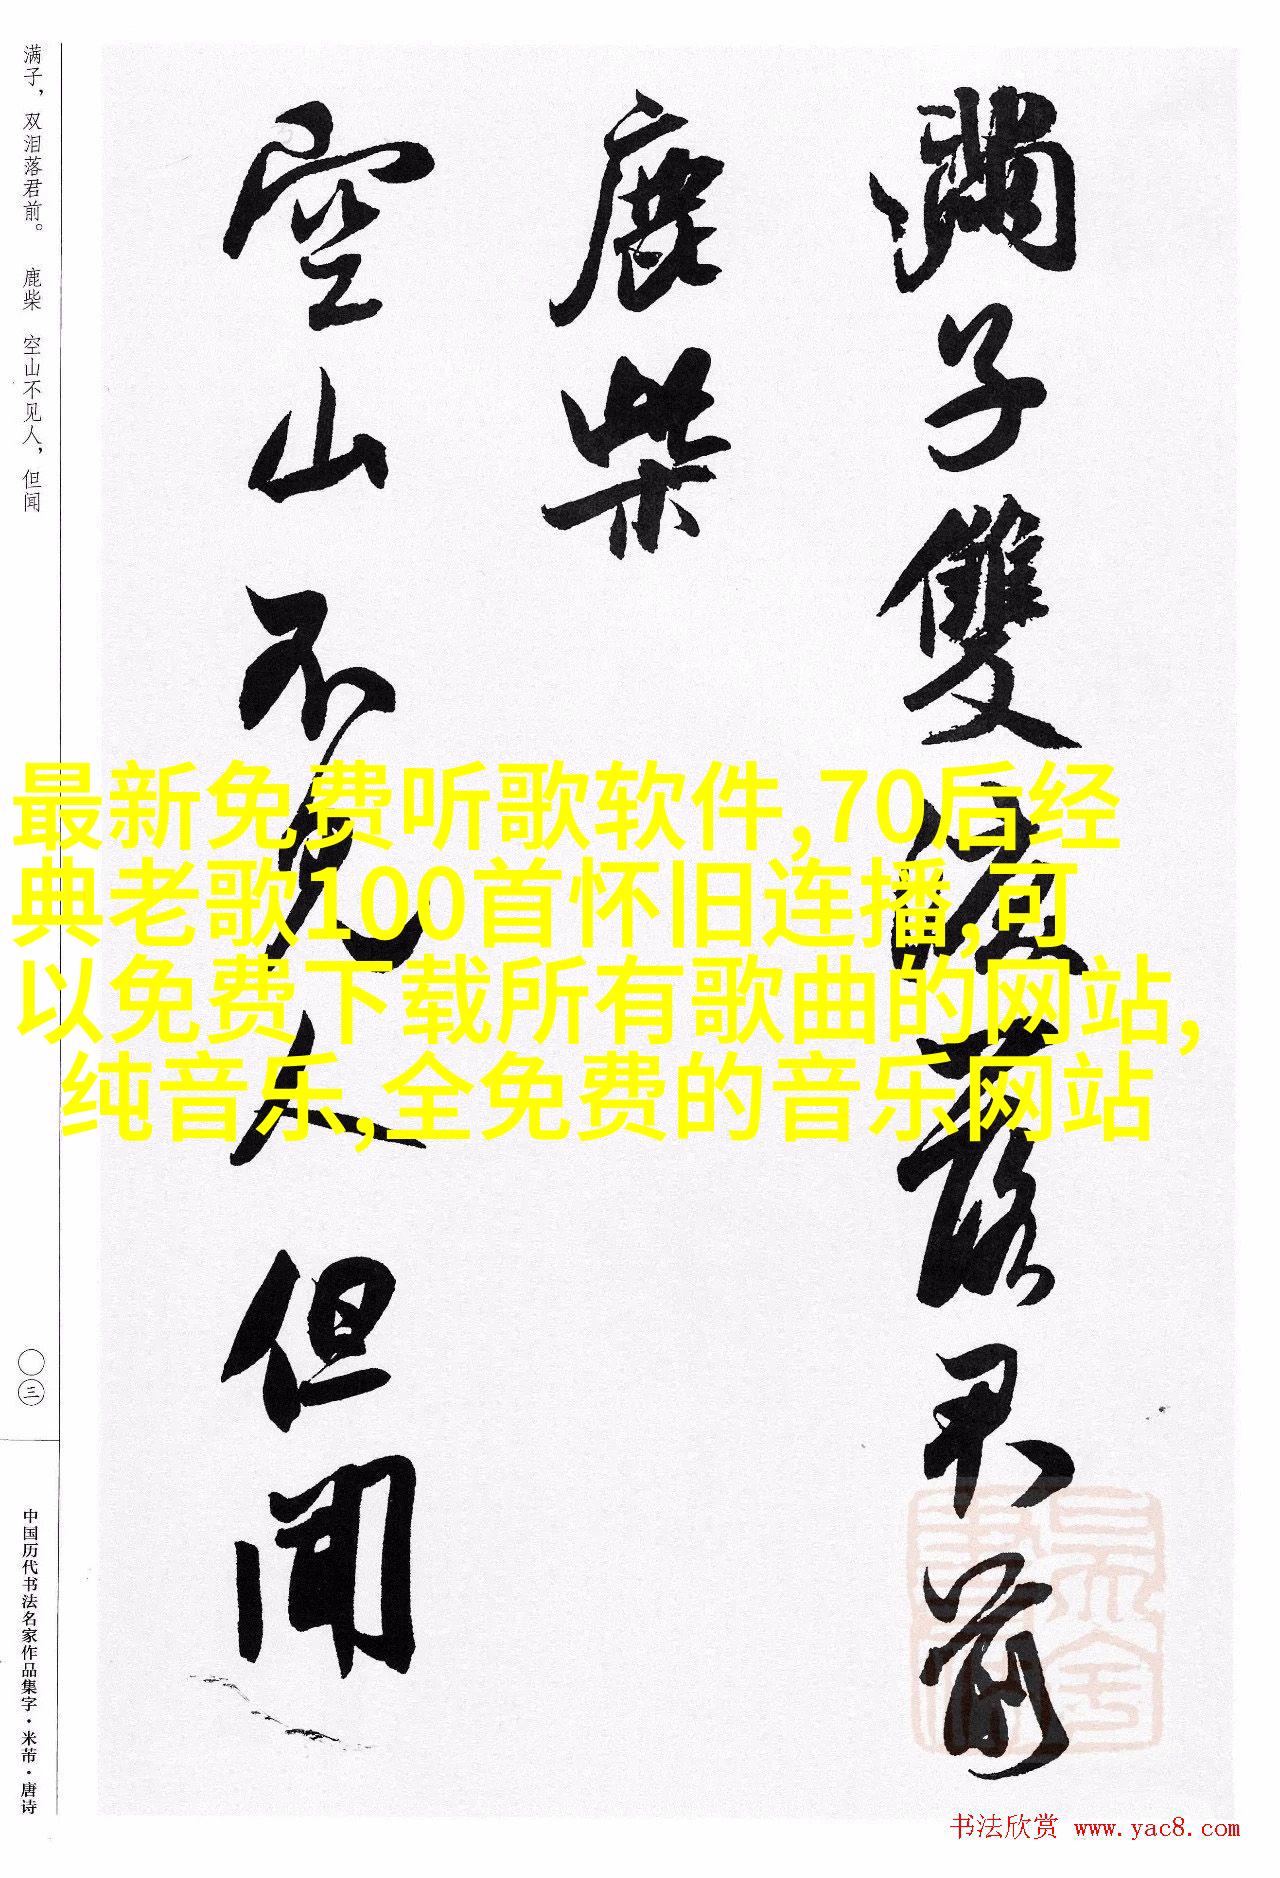 满子，双泪落君前。 鹿柴 空山不见人，但闻
滿子雙淚落君前
鹿柴
空山不見人但聞
最新免费听歌软件,70后经
典老歌100首怀旧连播,可
以免费下载所有歌曲的网站,
纯音乐,全免费的音乐网站
〇三
中国历代书法名家作品集字·米芾·唐诗
书法欣赏 www.yac8.com